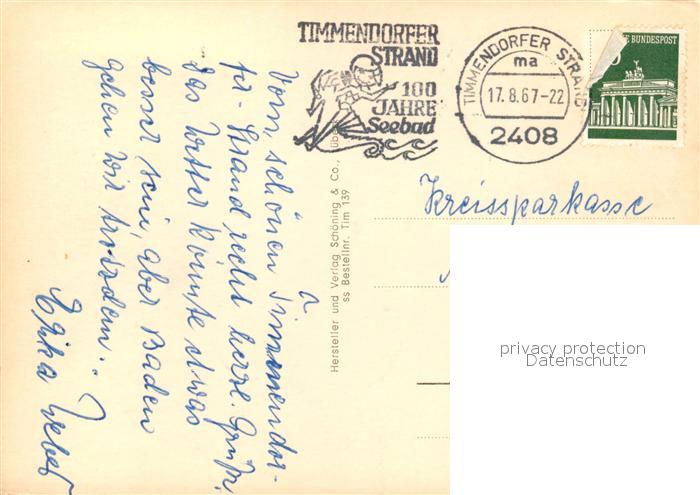 TIMMENDORFER
STRAND
100
JAHRE
Seebad
TIMMENDORFER STRAND
ma
17.8.67-22
2408
E BUNDESPOST
Vom schönen Timmendor-
fer-Strand recht herzl. Grüße.
Das Wetter könnte etwas
besser sein, aber Baden
gehen wir trotzdem.
Erika Weber
Hersteller und Verlag Schöning & Co.,
ss Bestellnr. Tim 139
Kreissparkasse
privacy protection
Datenschutz